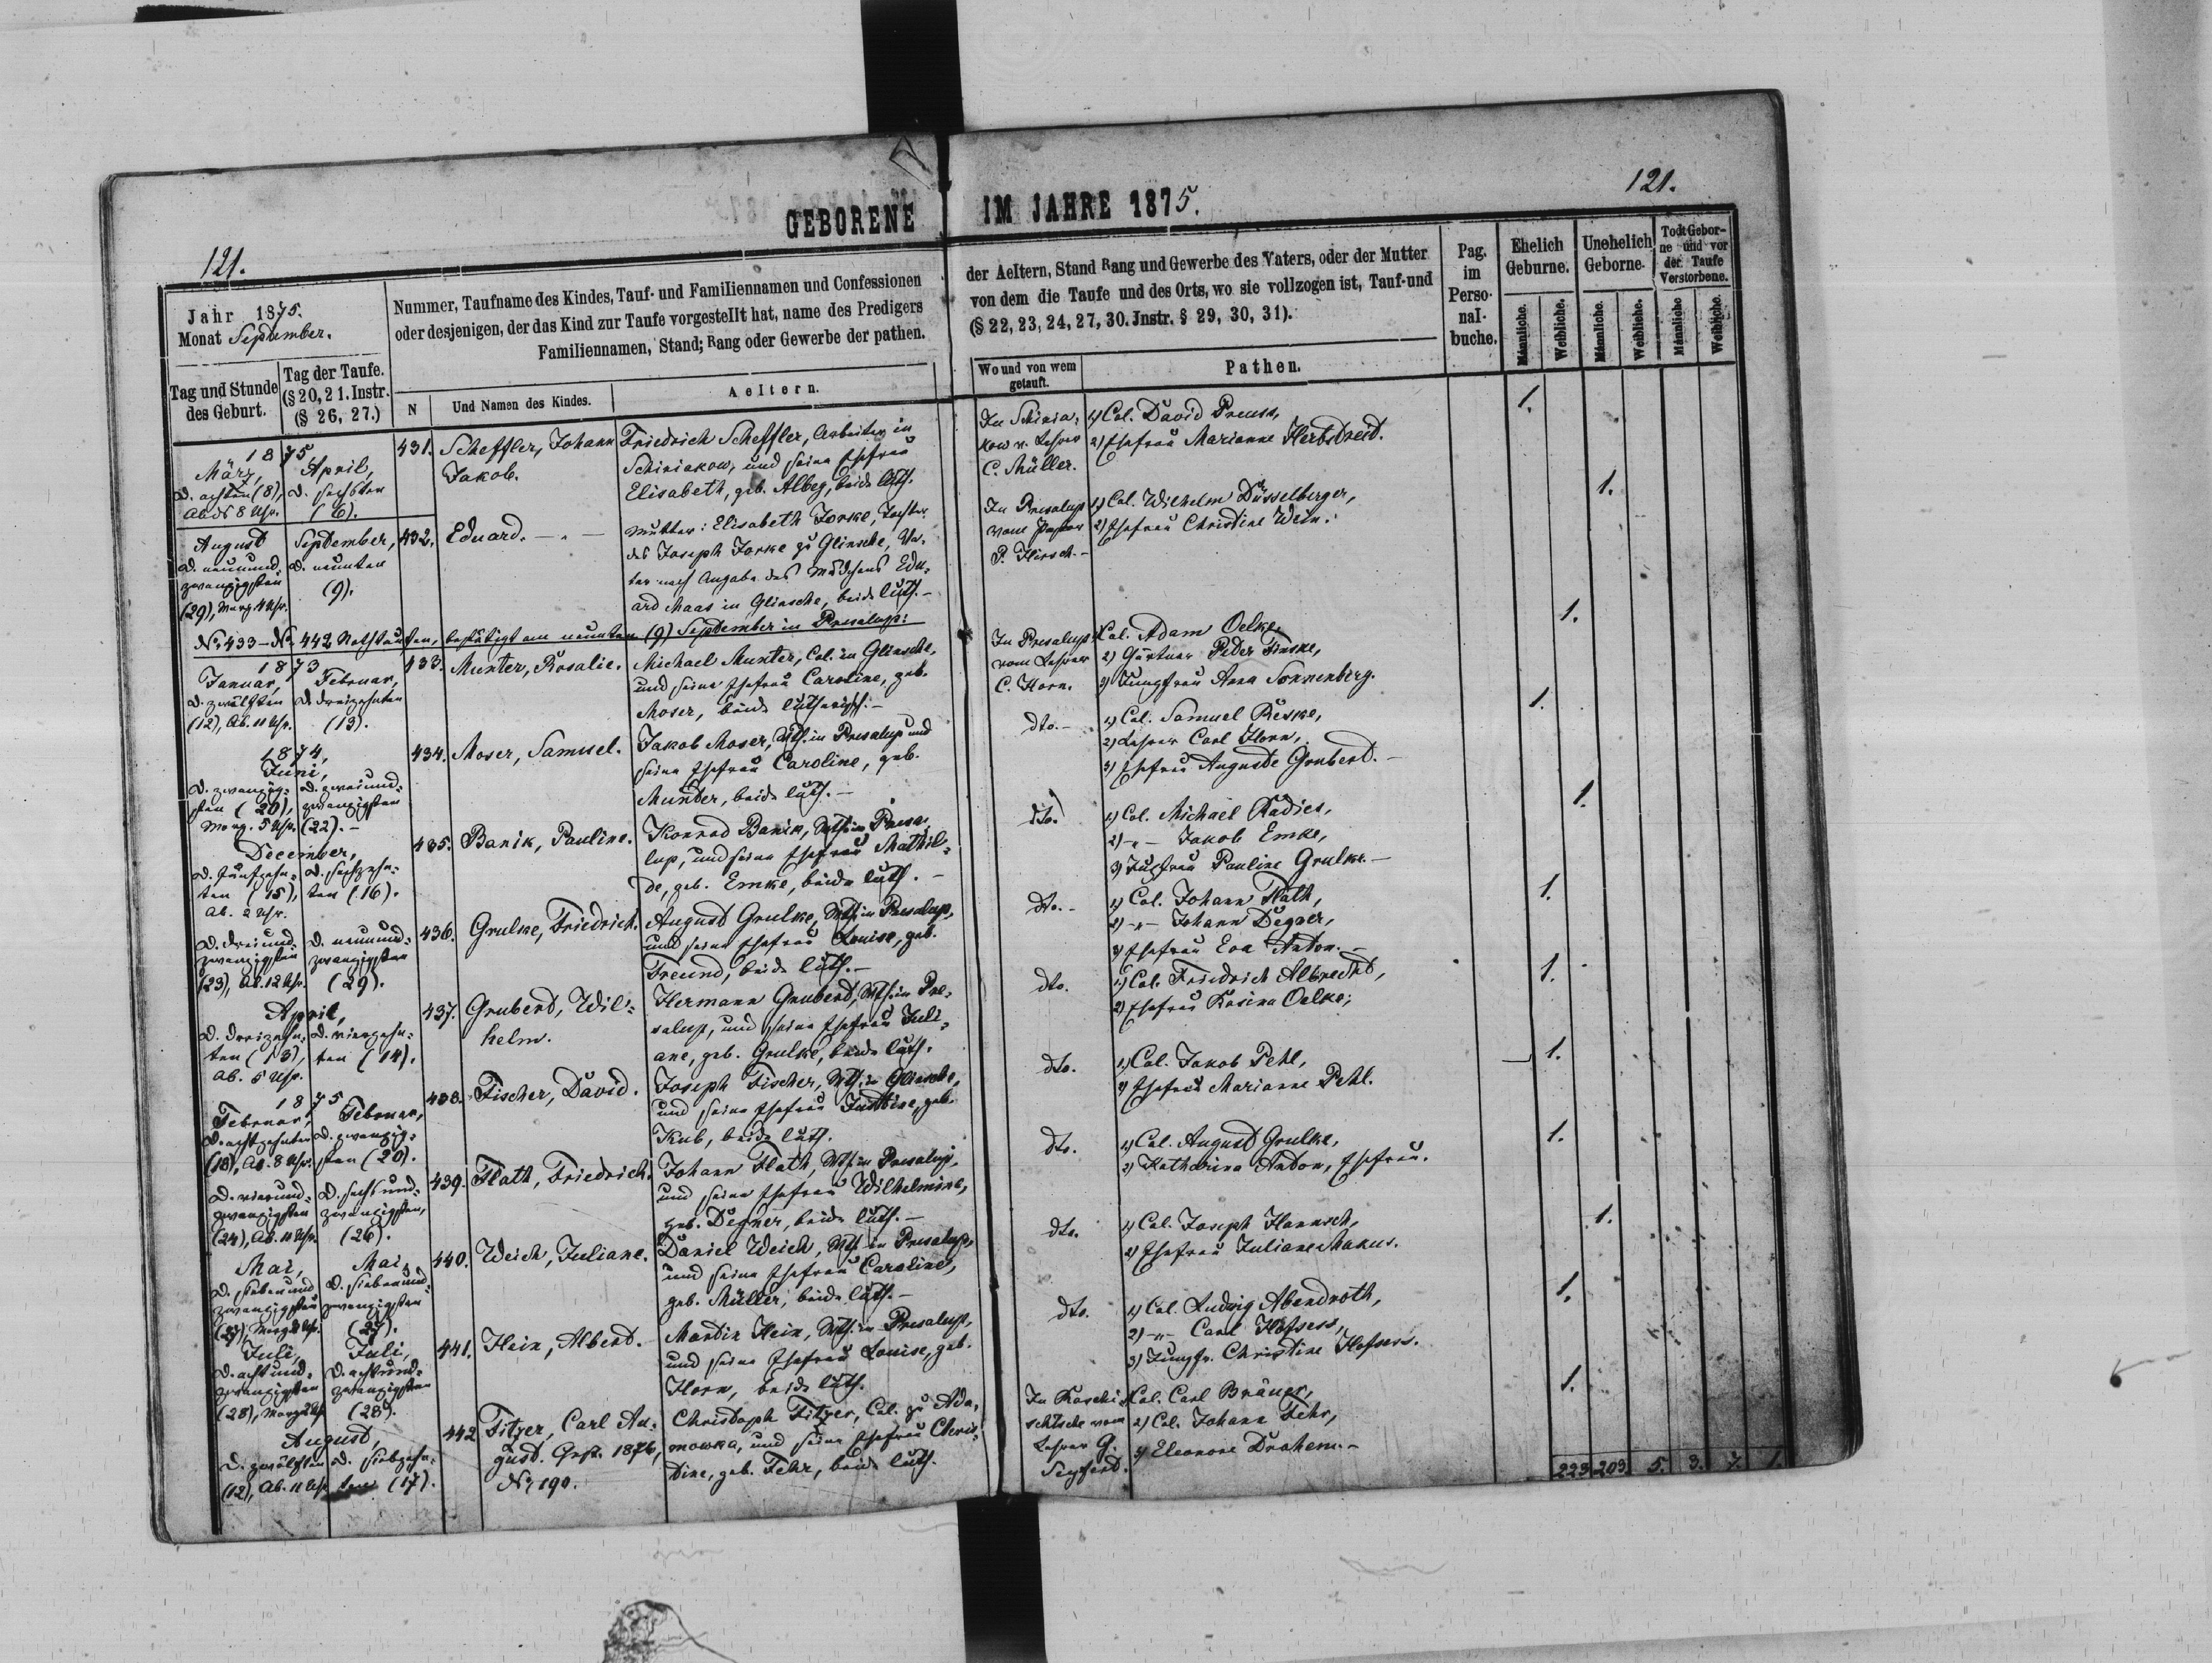 GEBORENE IM JAHRE 1875.
121.
121.
Jahr 1875.
Monat September.
Tag und Stunde
des Geburt.
Tag der Taufe.
(§ 20, 21. Instr.
(§ 26, 27.)
Nummer, Taufname des Kindes, Tauf- und Familiennamen und Confessionen
oder desjenigen, der das Kind zur Taufe vorgestellt hat, name des Predigers
Familiennamen, Stand; Rang oder Gewerbe der pathen.
N
Und Namen des Kindes.
Aeltern.
der Aeltern, Stand Rang und Gewerbe des Vaters, oder der Mutter
von dem die Taufe und des Orts, wo sie vollzogen ist, Tauf-und
(§ 22, 23, 24, 27, 30. Jnstr. § 29, 30, 31).
Wo und von wem
getauft.
Pathen.
Pag.
im
Perso-
nal-
buche.
Ehelich
Geburne.
Unehelich
Geborne.
Todt Gebor-
ne und vor
der Taufe
Verstorbene.
Männliche.
Weibliche.
Männliche.
Weibliche.
Männliche
Weibliche.
1875
März,
d. achten (8),
Abds 8 Uhr.
April,
d. sechsten
(6).
431.
Scheffler, Johann
Jakob.
Friedrich Scheffler, Arbeiter in
Schiriakow, und seine Ehefrau
Elisabeth, geb. Albeg, beide luth.
In Schiria-
kow v. Lehrer
C. Müller.
1) Col. David Preuss,
2) Ehefrau Marianne Herbstreit.
1.
August
d. neunund-
zwanzigsten
(29), Morg. 4 Uhr.
September,
d. neunten
(9).
432.
Eduard. - " -
Mutter: Elisabeth Jorke, Tochter
des Joseph Jorke zu Glinsche, Va-
ter nach Angabe des Mädchens Edu-
ard Maas in Glinsche, beide luth. -
In Presalup
vom Pastor
P. Hirsch. -
1) Col. Wilhelm Düsselberger,
2) Ehefrau Christine Wein.
1.
No 433 - No 442 Nothtaufen, bestätigt am neunten (9) September in Presalup:
1873
Januar,
d. zwölften
(12), Ab. 11 Uhr.
Februar,
d. dreizehnten
(13).
433.
Munter, Rosalie.
Michael Munter, Col. in Glinsche,
und seine Ehefrau Caroline, geb.
Moser, beide lutherisch. -
In Presalup
vom Lehrer
C. Horn.
1) Col. Adam Oelke,
2) Gärtner Peter Finske,
3) Jungfrau Anna Sonnenberg.
1.
1874,
Juni,
d. zwanzig-
sten (20),
Morg. 5 Uhr.
d. zweiund-
zwanzigsten
(22). -
434.
Moser, Samuel.
Jakob Moser, Wth. in Presalup und
seine Ehefrau Caroline, geb.
Munter, beide luth. -
dto. -
1) Col. Samuel Reske,
2) Lehrer Carl Horn,
3) Ehefrau Auguste Grubert. -
1.
December,
d. fünfzehn-
ten (15),
Ab. 2 Uhr.
d. sechzehn-
ten (16).
435.
Banik, Pauline.
Konrad Banik, Wth. in Presa-
lup, und seine Ehefrau Mathil-
de, geb. Emke, beide luth. -
dto.
1) Col. Michael Radies,
2) - " - Jakob Emke,
3) Jungfrau Pauline Grulke. -
1.
d. dreiund-
zwanzigsten
(23), Ab. 12 Uhr.
d. neunund-
zwanzigsten
(29).
436.
Grulke, Friedrich.
August Grulke, Wth. in Presalup,
und seine Ehefrau Louise, geb.
Freund, beide luth. -
dto. -
1) Col. Johann Flath,
2) - " - Johann Degner,
3) Ehefrau Eva Anton. -
1.
April,
d. dreizehn-
ten (13),
Ab. 5 Uhr.
d. vierzehn-
ten (14).
437.
Grubert, Wil-
helm.
Hermann Grubert, Wth. in Pre-
salup, und seine Ehefrau Juli-
ane, geb. Grulke, beide luth.
dto.
1) Col. Friedrich Albrecht,
2) Ehefrau Rosina Oelke;
1.
1875
Februar,
d. achtzehnten
(18), Ab. 8 Uhr.
Februar,
d. zwanzig-
sten (20).
438.
Fischer, David.
Joseph Fischer, Wth. in Glinsche,
und seine Ehefrau Justine, geb.
Kub, beide luth.
dto.
1) Col. Jakob Pehl,
2) Ehefrau Marianne Pehl.
1.
d. vierund-
zwanzigsten
(24), Ab. 11 Uhr.
d. sechsund-
zwanzigsten,
(26).
439.
Flath, Friedrich.
Johann Flath, Wth. in Presalup,
und seine Ehefrau Wilhelmine,
geb. Degner, beide luth. -
dto.
1) Col. August Grulke,
2) Katharina Anton, Ehefrau.
1.
Mai,
d. siebenund
zwanzigsten
(27), Morg. 2 Uhr.
Mai,
d. siebenund-
zwanzigsten
(27).
440.
Weich, Juliane.
Daniel Weich, Wth. in Presalup,
und seine Ehefrau Caroline,
geb. Müller, beide luth. -
dto.
1) Col. Joseph Hannsch,
2) Ehefrau Juliane Makus.
1.
Juli,
d. achtund-
zwanzigsten
(28), Morg. 2 Uhr
Juli,
d. achtund-
zwanzigsten
(28).
441.
Hein, Albert.
Martin Hein, Wth. in Presalup,
und seine Ehefrau Louise, geb.
Horn, beide luth.
dto.
1) Col. Ludwig Abendroth,
2) - " - Carl Hofsess,
3) Jungfr. Christine Hofsess.
1.
August,
d. zwölften
(12), Ab. 11 Uhr
d. siebzehn-
ten (17).
442
Fitzer, Carl Au-
gust. 1876,
No 190.
Christoph Fitzer, Col. zu Ada-
mowka, und seine Ehefrau Chris-
tine, geb. Fehr, beide luth.
In Koschi-
schtsche vom
Lehrer G.
Seyferd.
1) Col. Carl Bräuer,
2) Col. Johann Fehr,
3) Eleonore Draheim. -
1.
223. 203. 5. 3. 7. 1.